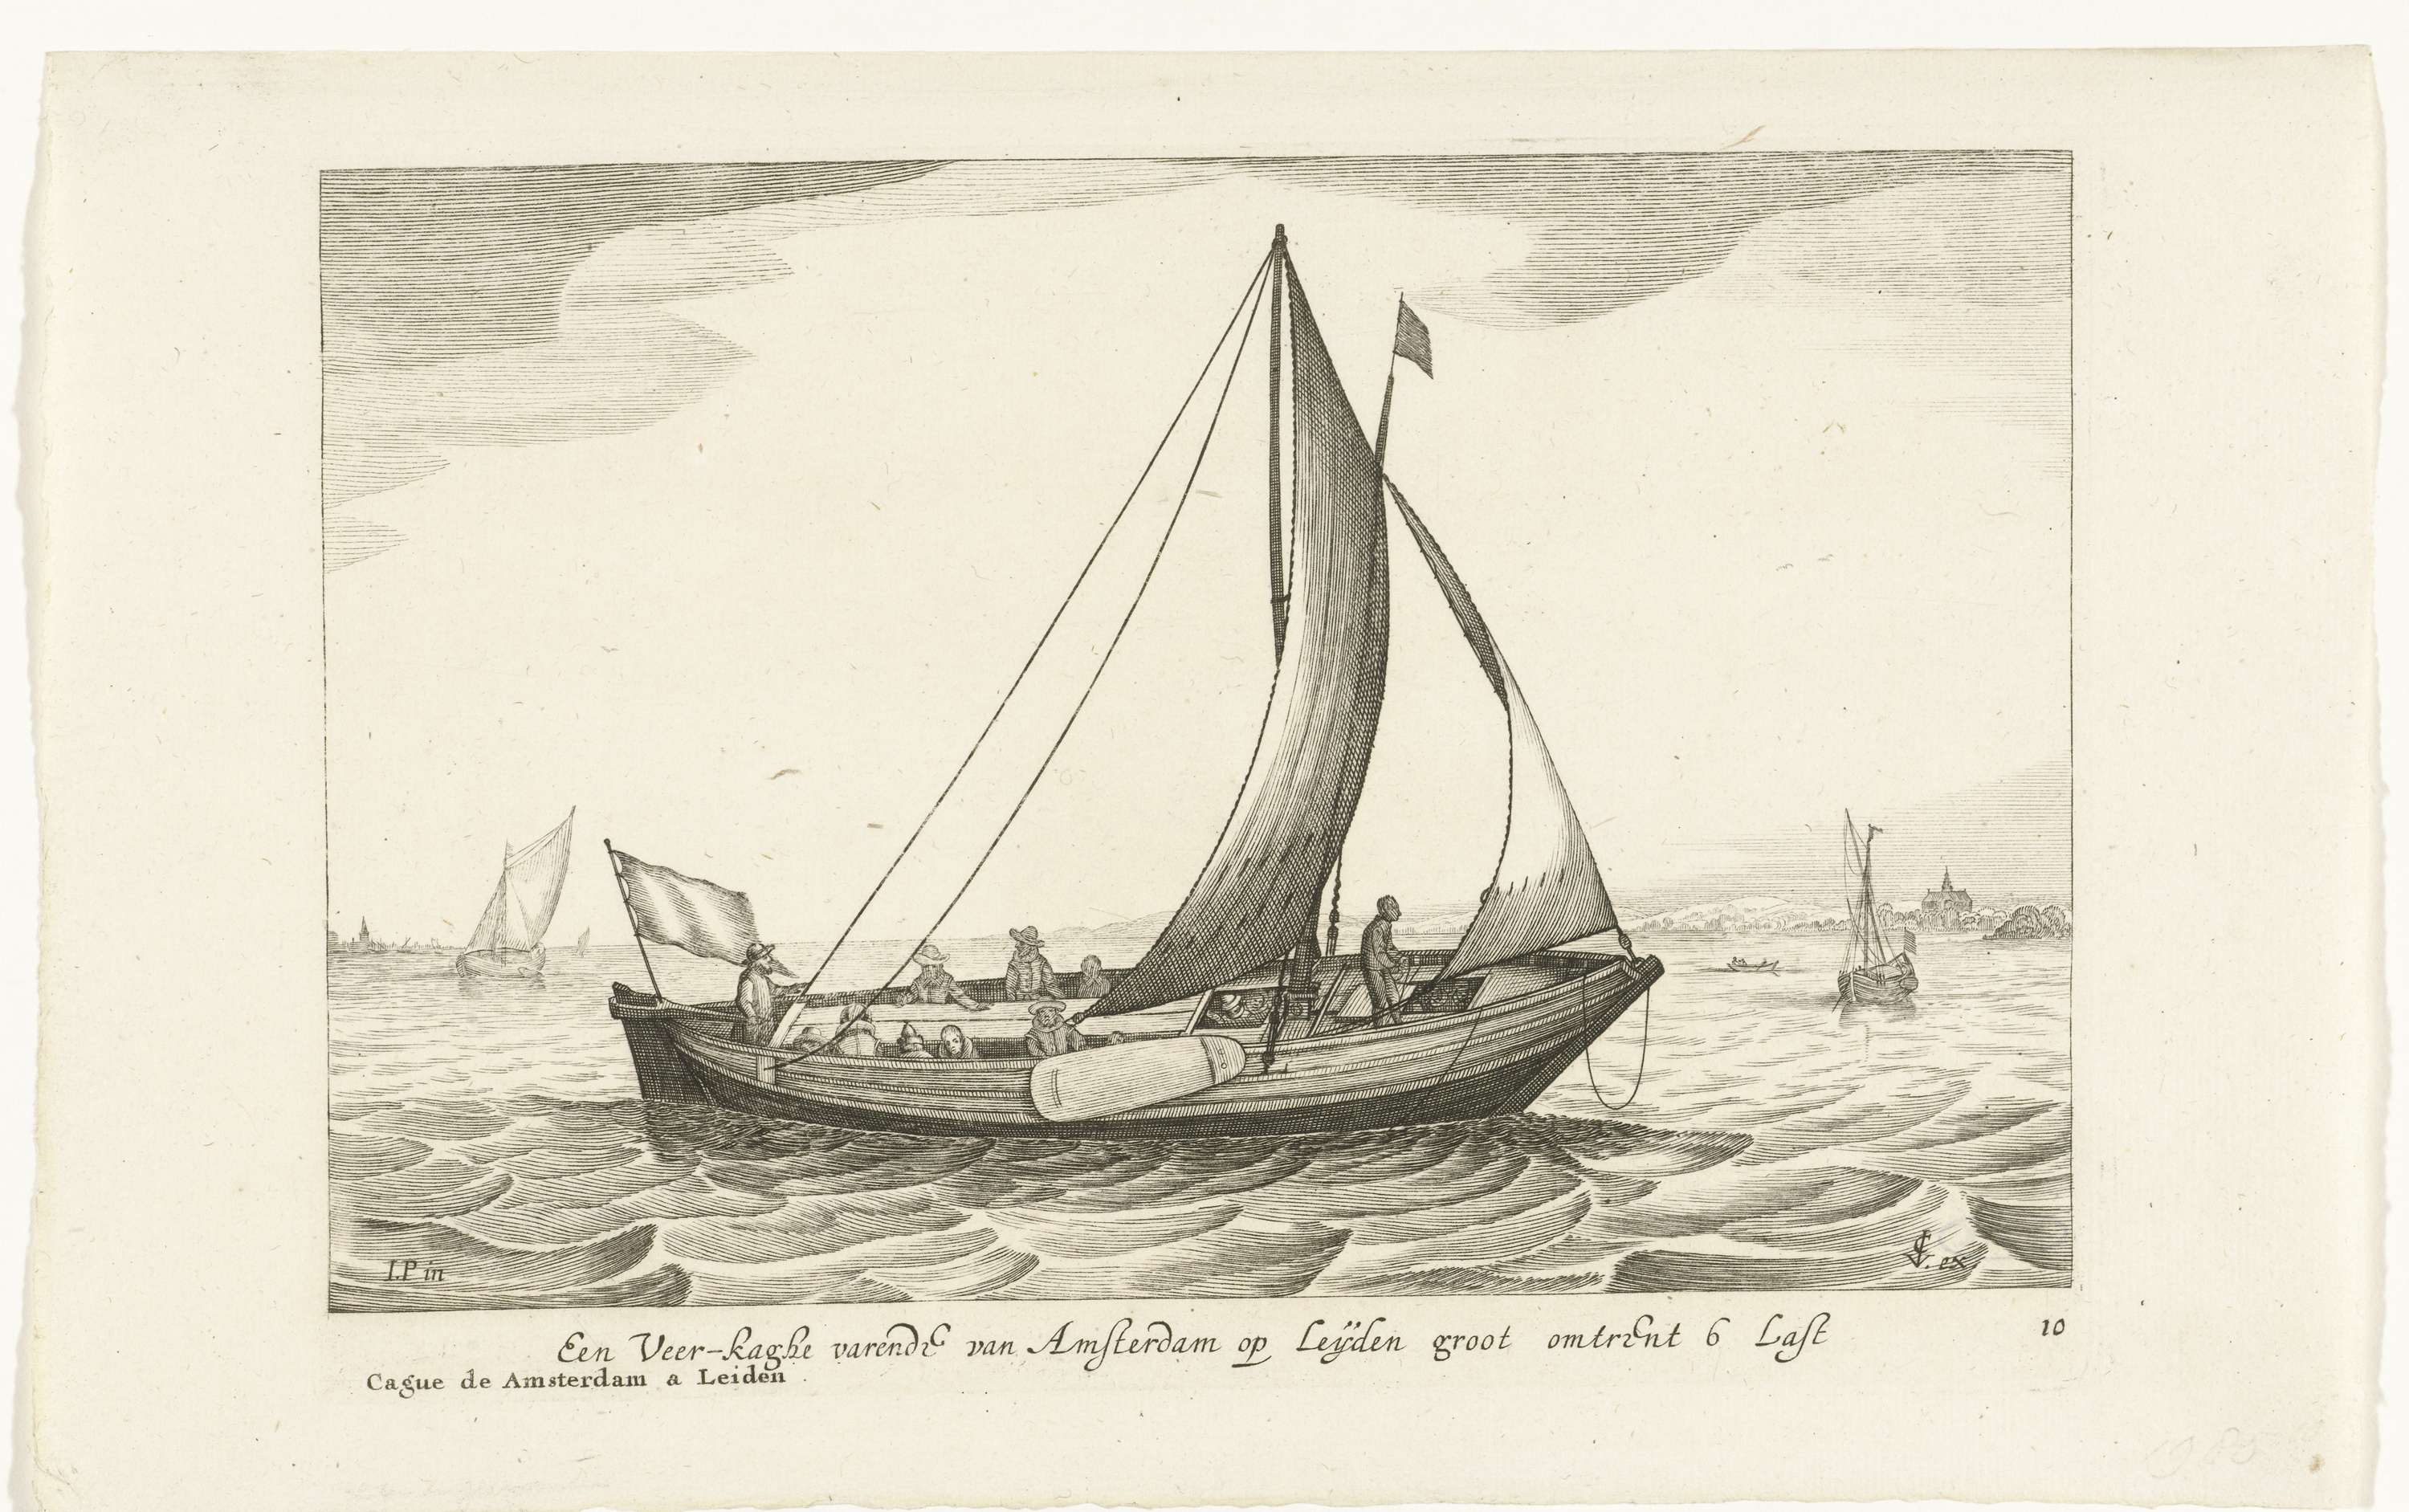 I.P in
CIV. ex
Een Veer-kaghe varende van Amsterdam op Leÿden groot omtrent 6 Last
10
Cague de Amsterdam a Leiden